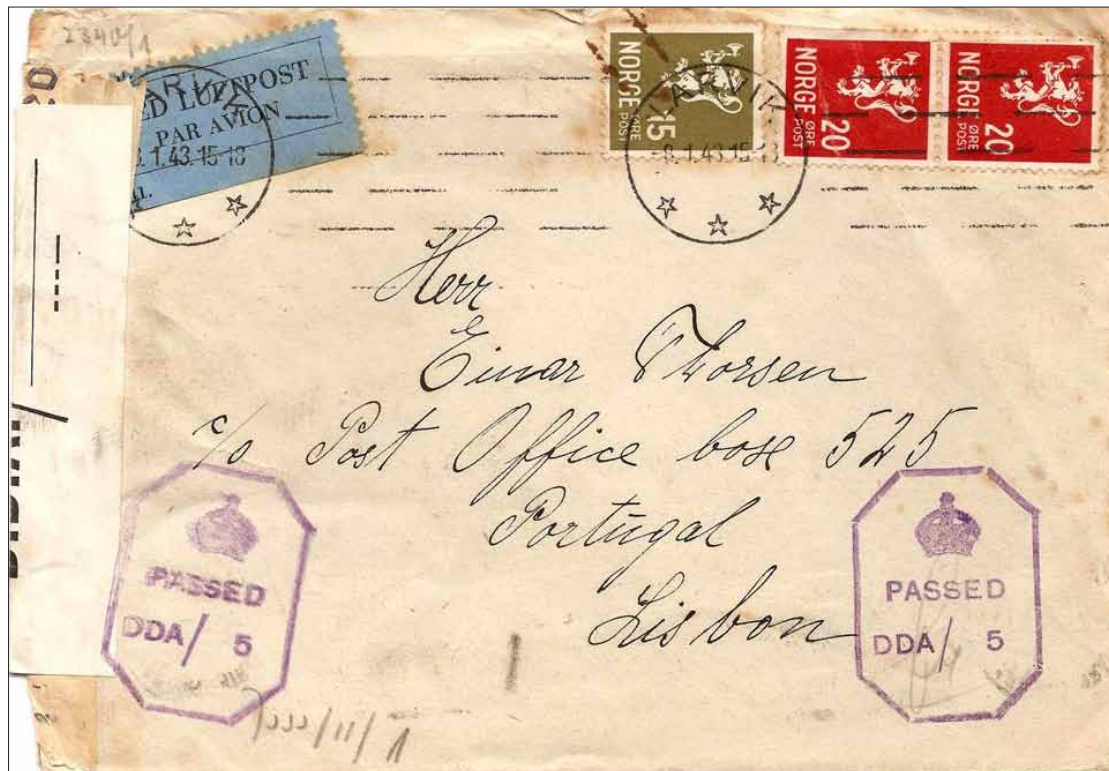 2340/1
LUFTPOST
PAR AVION
1.43.15-18
NORGE
15
ØRE
POST
LARVIK
8.1.43.15-18
NORGE
20
ØRE
POST
NORGE
20
ØRE
POST
Herr
Einar Thorsen
c/o Post Office box 525
Portugal
Lisbon
PASSED
DDA/ 5
PASSED
DDA/ 5